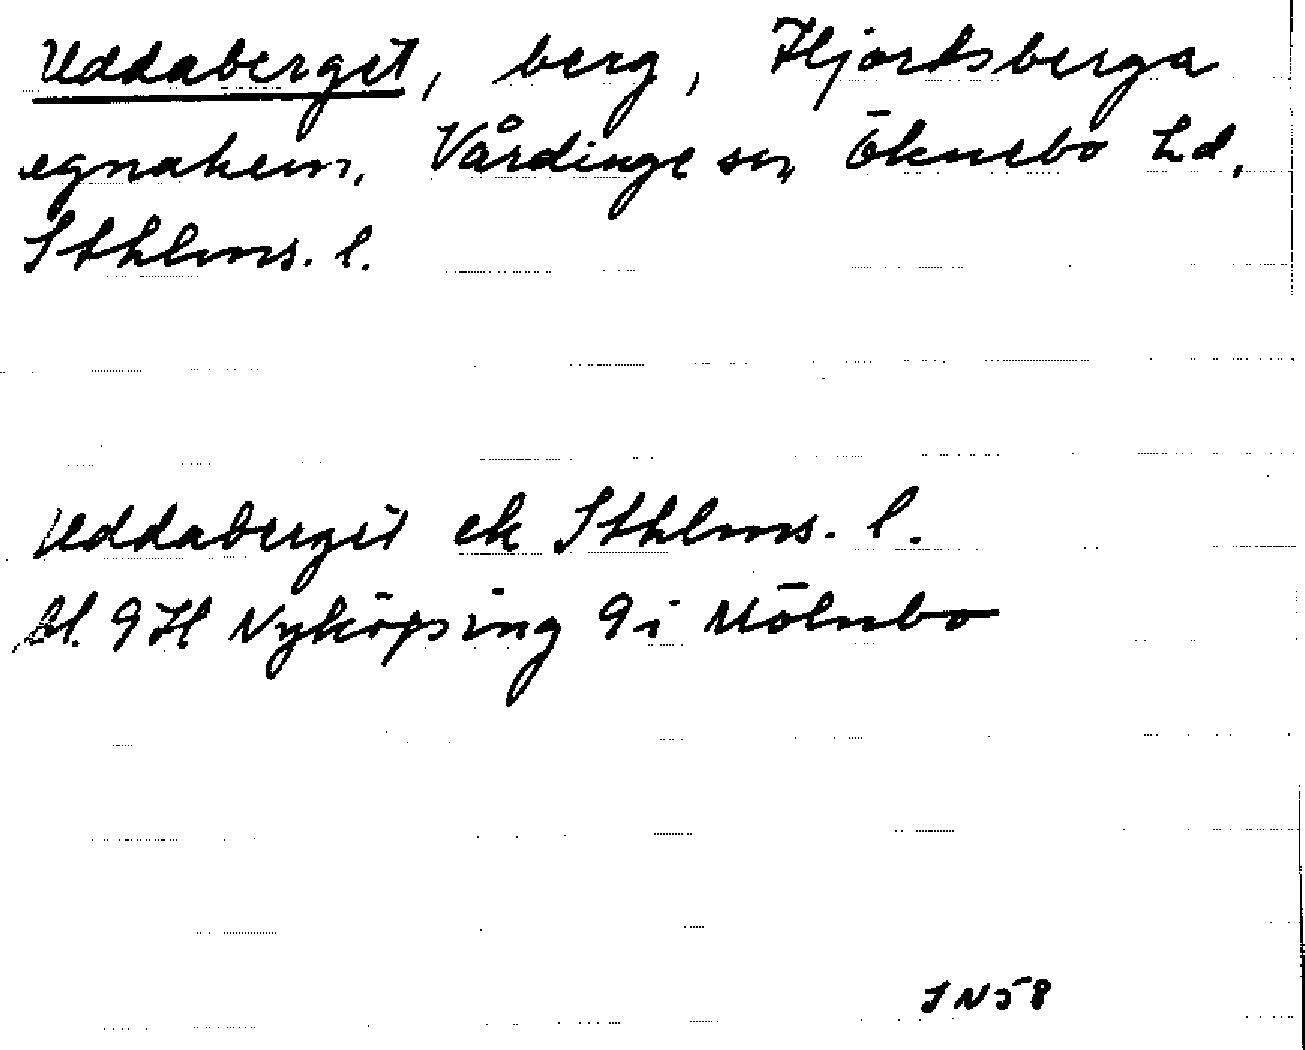 Uddaberget, berg, Hjortsberga
egnahem, Vårdinge sn, Öknebo hd,
Sthlms. l.
Uddaberget ek Sthlms. l.
bl. 9H Nyköping 9i Mölnbo
JN58